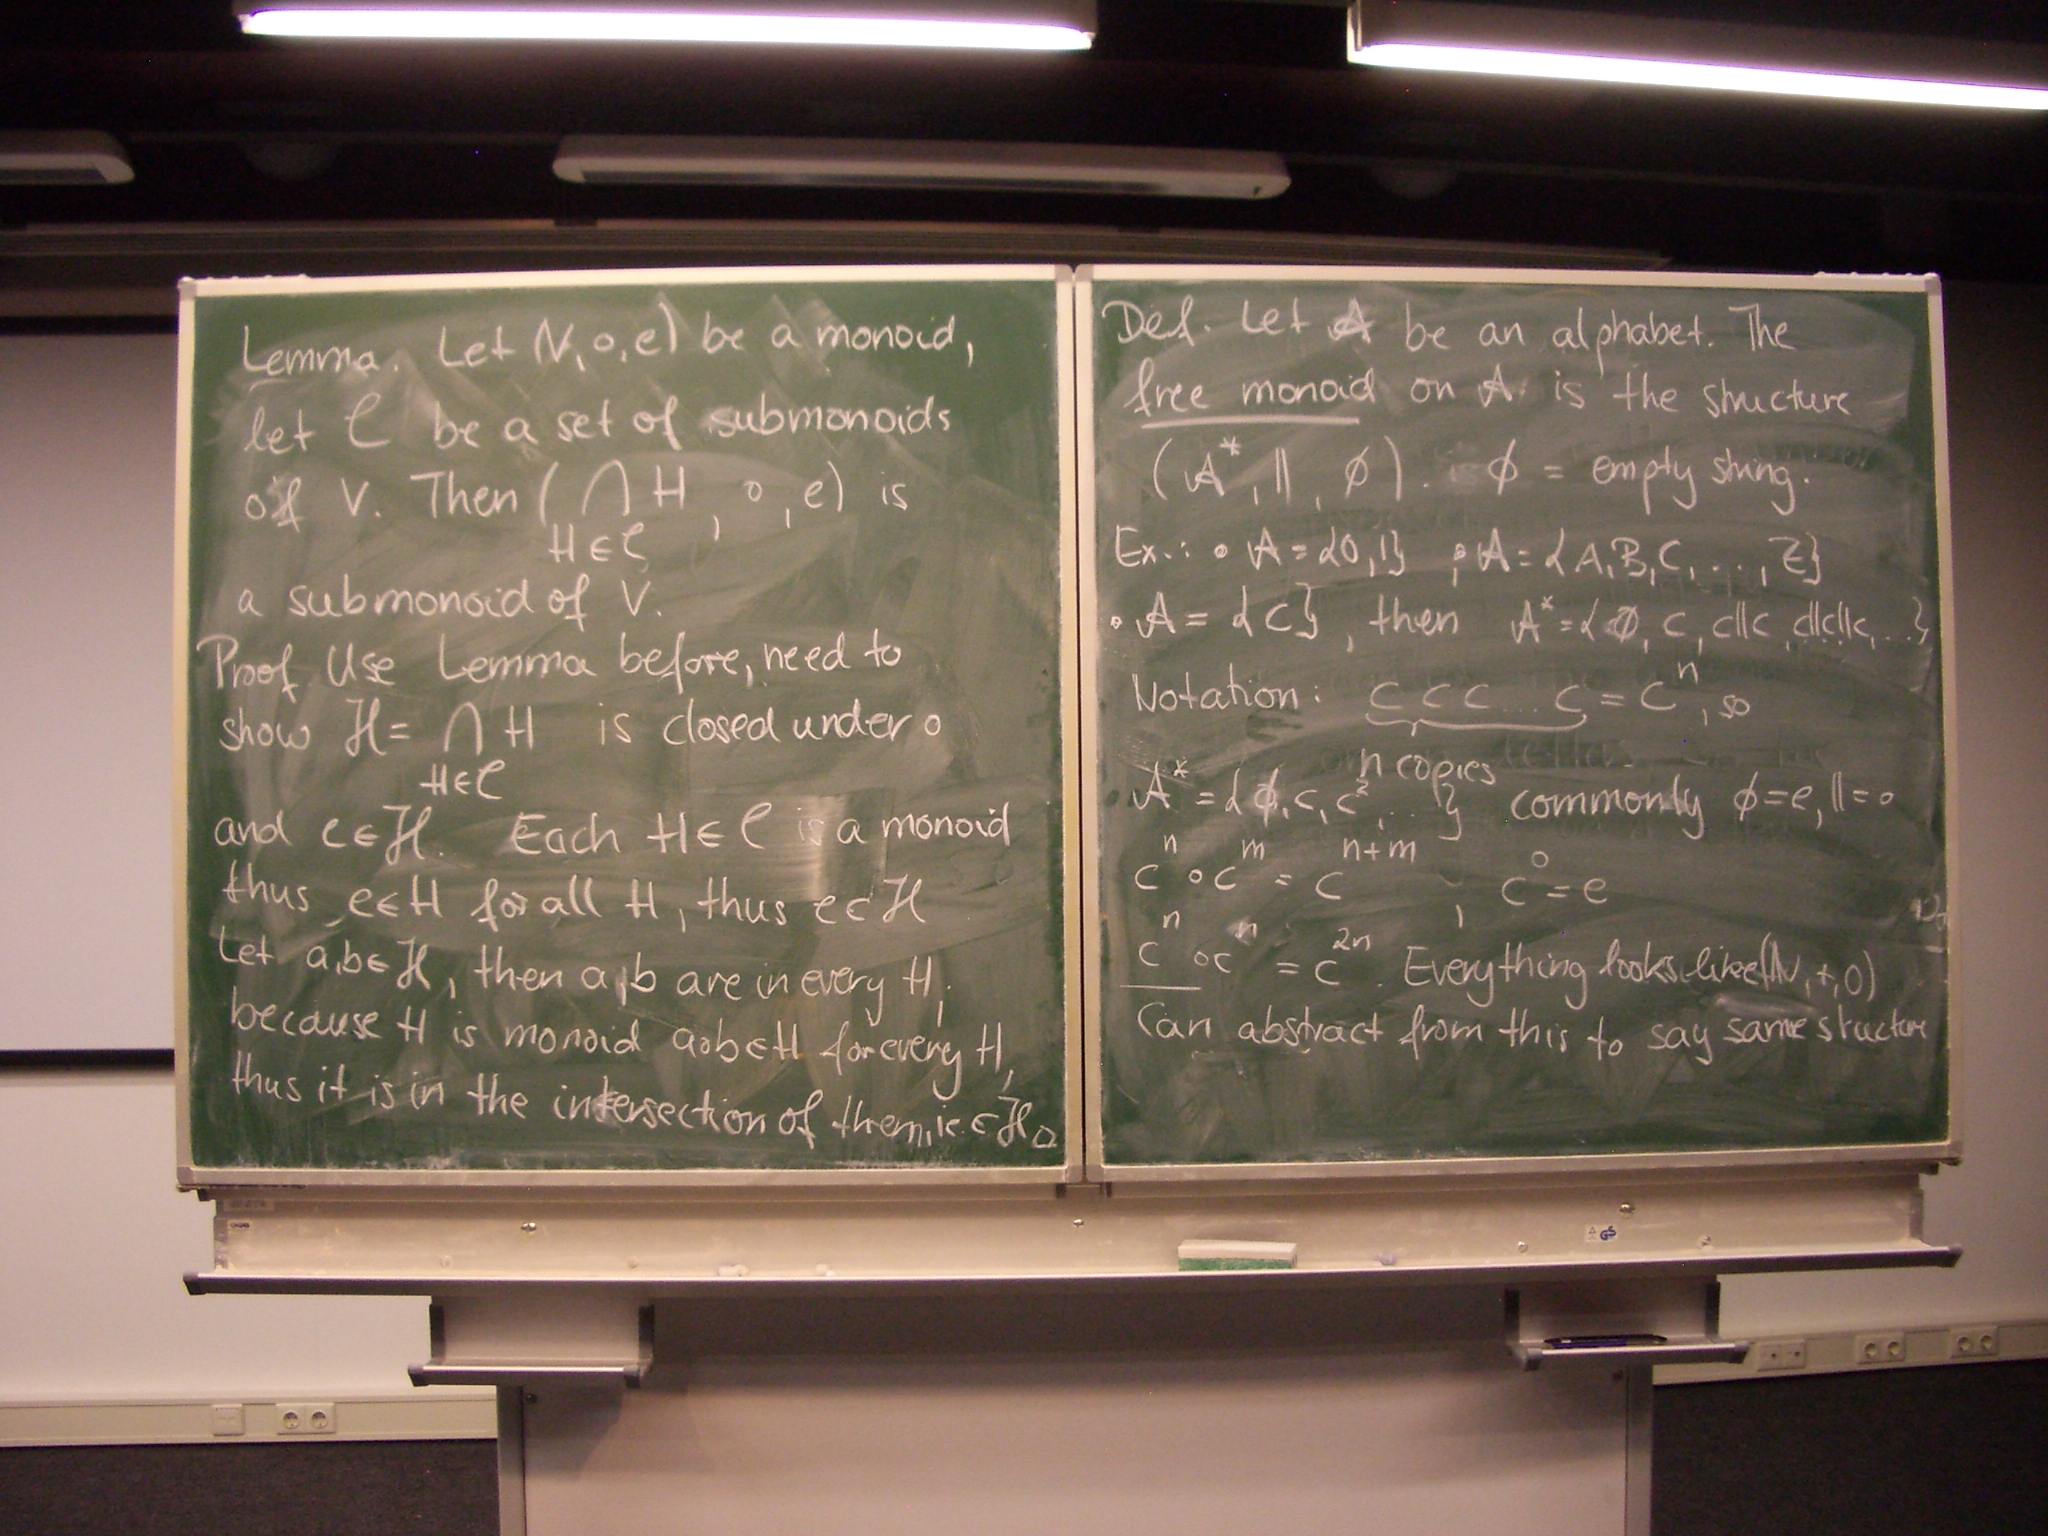 Lemma. Let (V, ∘, e) be a monoid,
let C be a set of submonoids
of V. Then (⋂ H, ∘, e) is
H∈C
a submonoid of V.
Proof Use Lemma before, need to
show ℋ = ⋂ H is closed under ∘
H∈C
and e∈ℋ. Each H∈C is a monoid
thus e∈H for all H, thus e∈ℋ
Let a,b∈ℋ, then a,b are in every H,
because H is monoid a∘b∈H for every H,
thus it is in the intersection of them, i.e. ∈ℋ □
Def. Let A be an alphabet. The
free monoid on A is the structure
(A*, ||, ϕ). ϕ = empty string.
Ex.: • A = {0,1} , • A = {A,B,C,...,Z}
• A = {c}, then A* = {ϕ, c, c||c, c||c||c, ...}
Notation: c c c ... c = cⁿ, so
n copies
A* = {ϕ, c, c², ...} commonly ϕ=e, ||=∘
cⁿ ∘ cᵐ = cⁿ⁺ᵐ , c⁰ = e
cⁿ ∘ cⁿ = c²ⁿ. Everything looks like (ℕ,+,0)
Can abstract from this to say same structure
GS